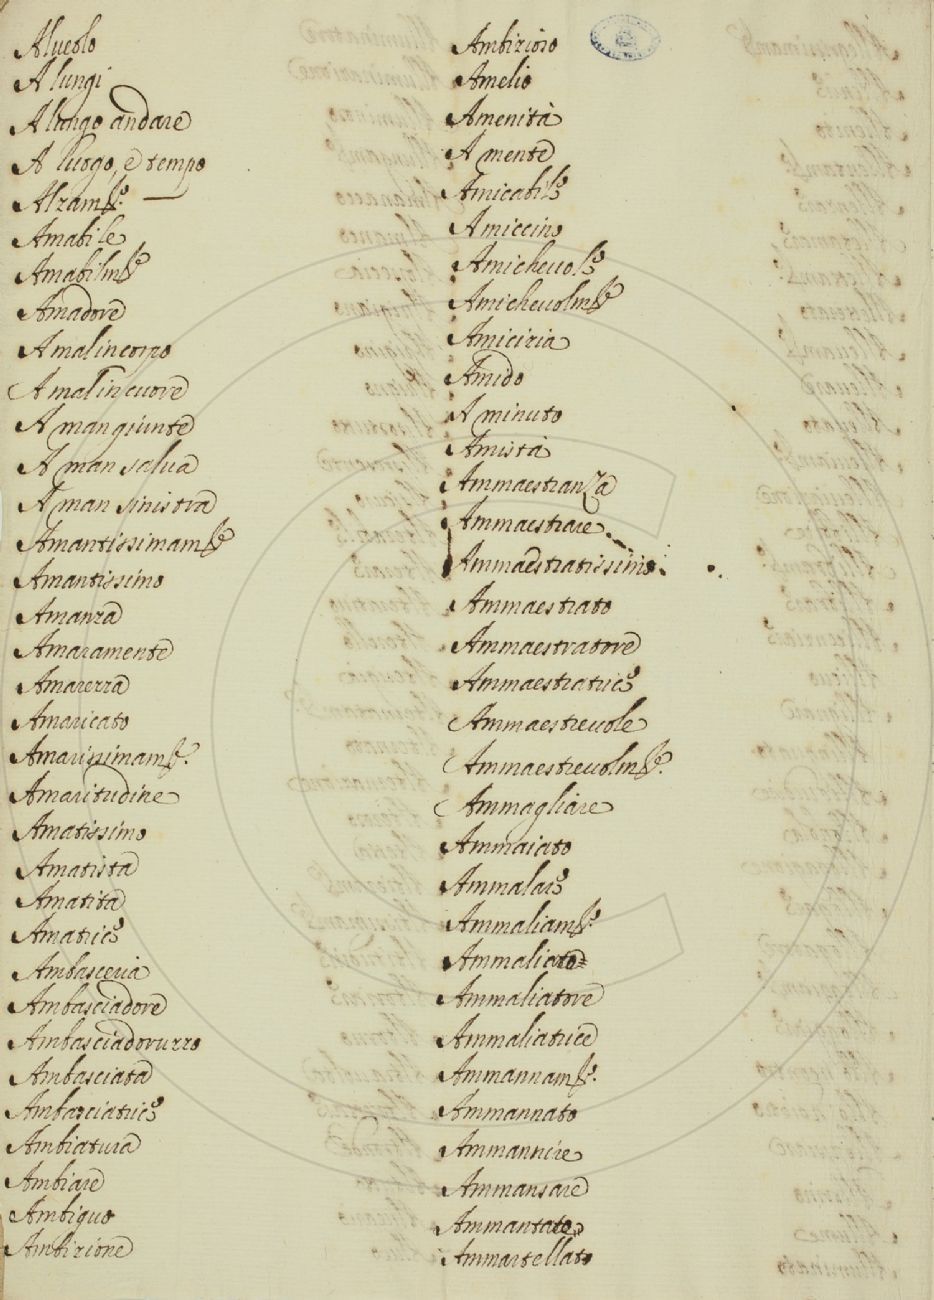 Alueolo
A lungi
A lungo andare
A luogo, e tempo
Alzam.to
Amabile
Amabilm.te
Amadore
A malincorpo
A malincuore
A man giunte
A man salua
A man sinistra
Amantissimam.te
Amantissimo
Amanza
Amaramente
Amarezza
Amaricato
Amarissimam.te
Amaritudine
Amatissimo
Amatista
Amatita
Amatrice
Ambasceria
Ambasciadore
Ambasciadoruzzo
Ambasciata
Ambasciatrice
Ambiatura
Ambiare
Ambiguo
Ambizione
Ambizioso
Amelio
Amenità
A mente
Amicabile
Amiccino
Amicheuole
Amicheuolm.te
Amicizia
Amido
A minuto
Amistà
Ammaestranza
Ammaestrare
Ammaestratissimo
Ammaestrato
Ammaestratore
Ammaestratrice
Ammaestreuole
Ammaestreuolm.te
Ammagliare
Ammaiato
Ammalare
Ammaliam.to
Ammaliatore
Ammaliatrice
Ammannam.to
Ammannato
Ammannire
Ammansare
Ammartellato